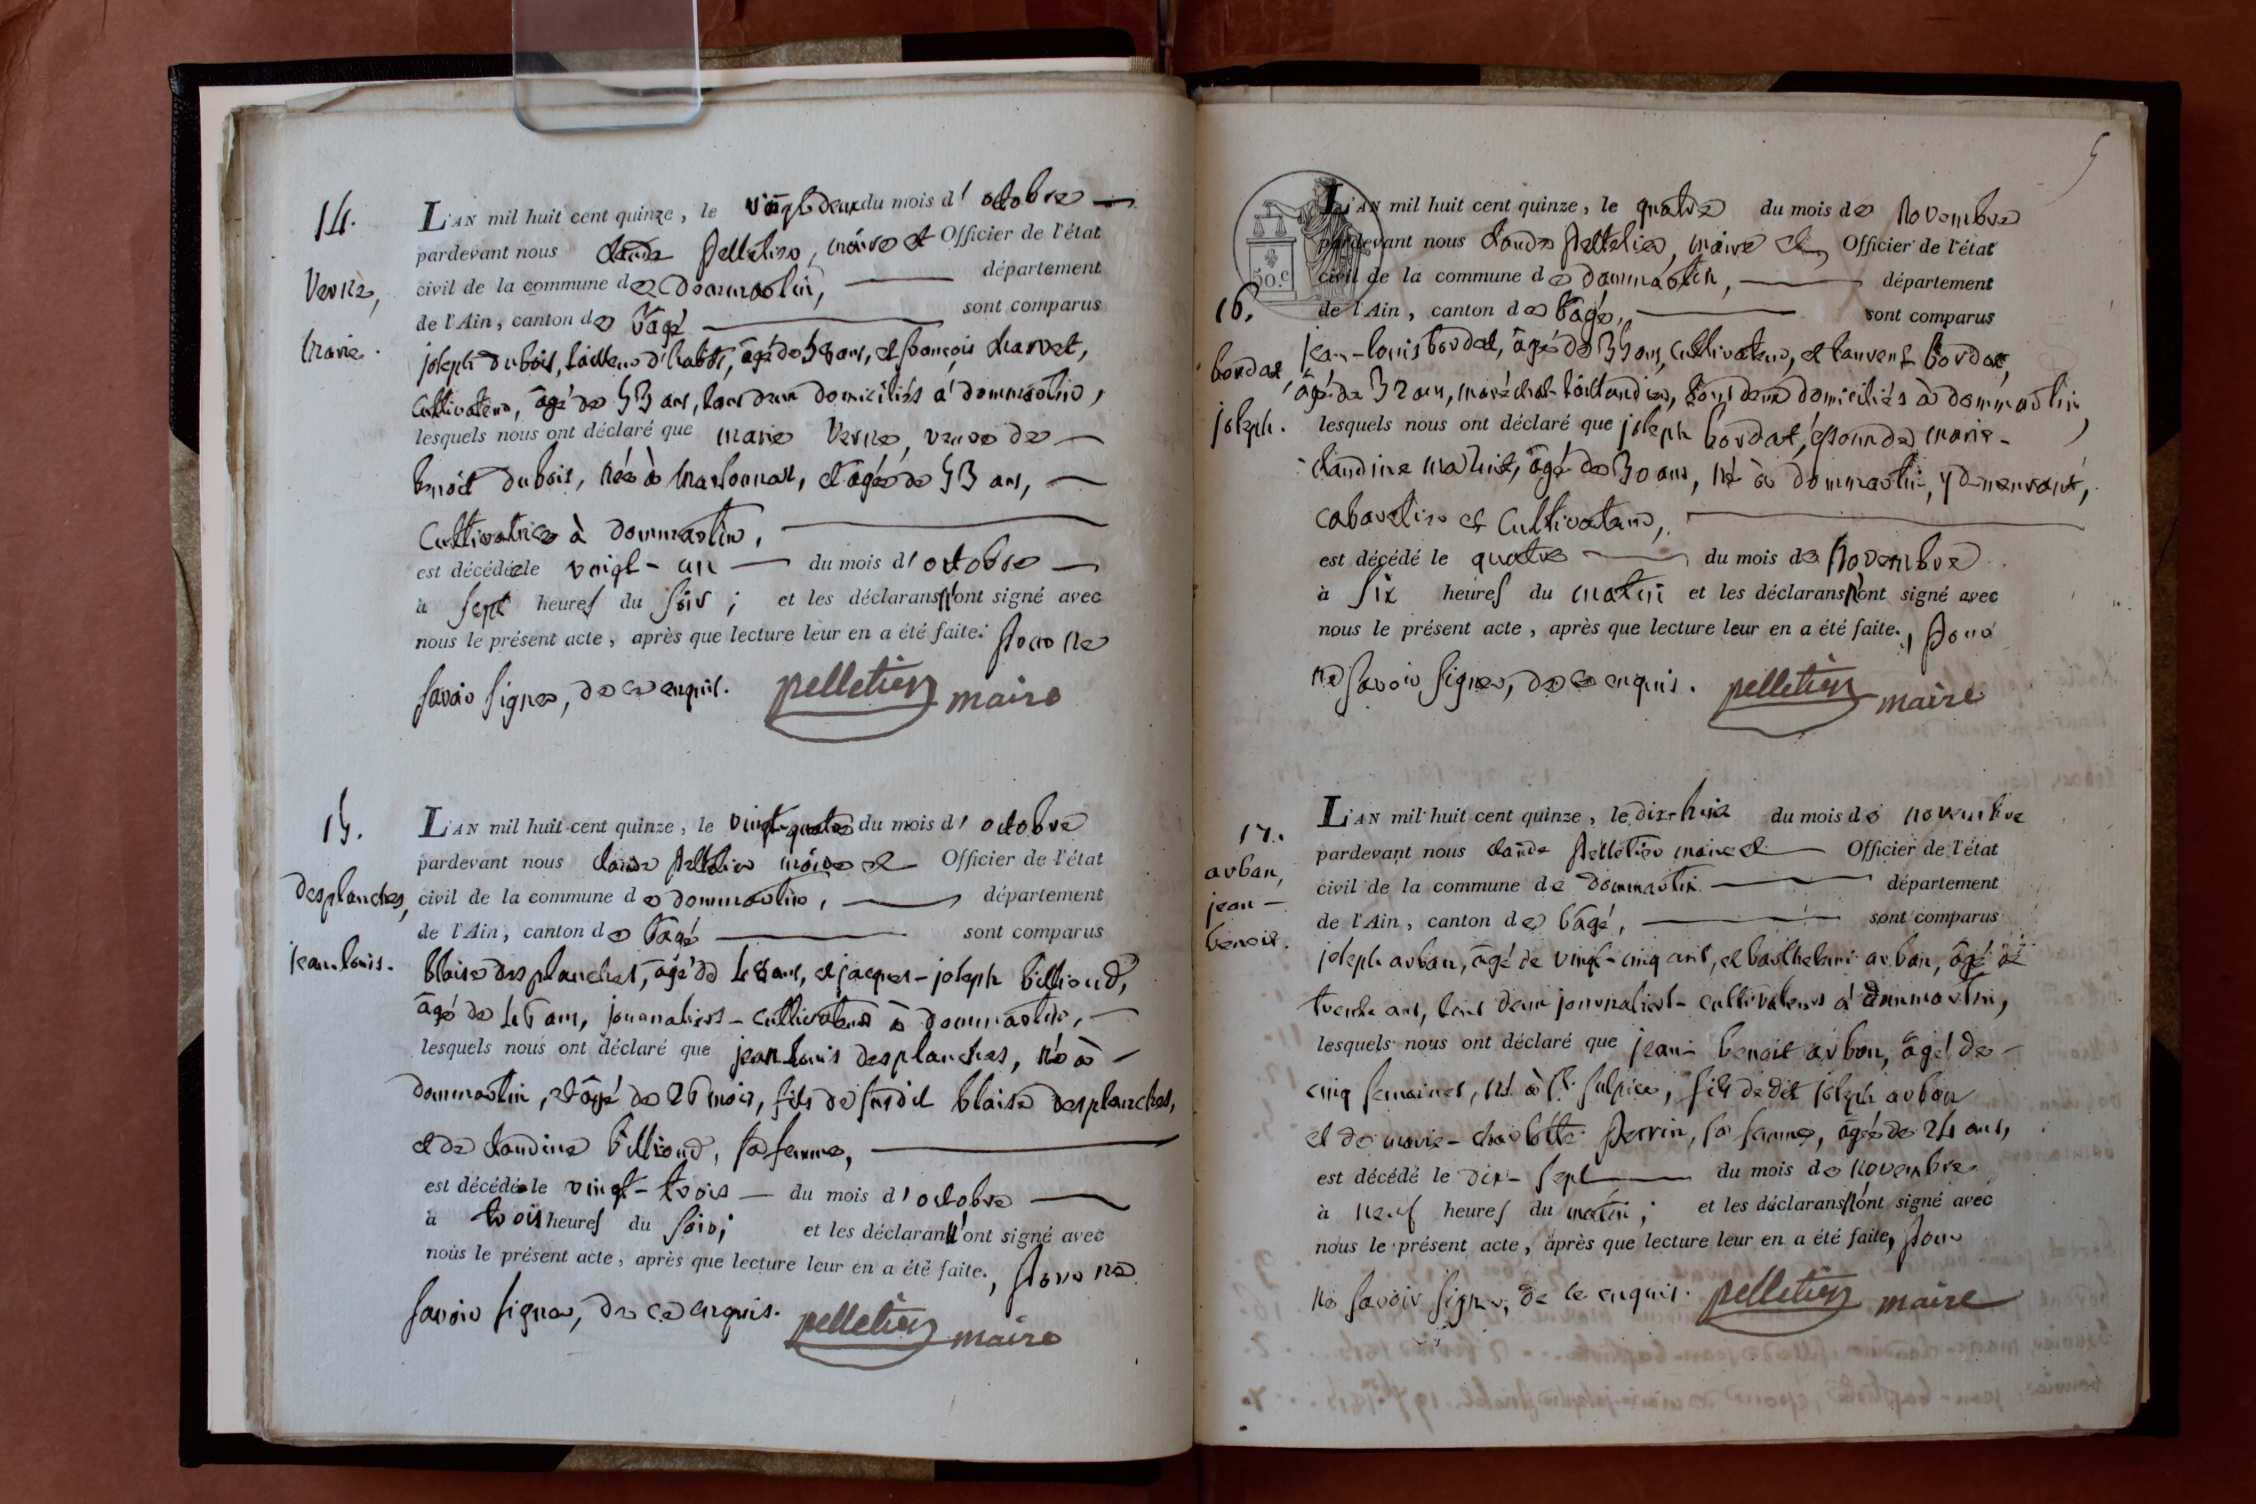 14.
Verne,
marie.
L'AN mil huit cent quinze, le vingt deux du mois d'octobre
pardevant nous claude pelletier, maire et Officier de l'état
civil de la commune de dommartin, département
de l'Ain, canton de bâgé sont comparus
joseph dubois, tailleur d'habits, âgé de 58 ans, et françois charvet,
cultivateur, âgé de 53 ans, tous deux domiciliés à dommartin,
lesquels nous ont déclaré que marie Verne, veuve de
benoit dubois, née à marsonnas, et âgée de 53 ans,
cultivatrice à dommartin,
est décédée le vingt-un du mois d'octobre
à sept heures du soir; et les déclarans n'ont signé avec
nous le présent acte, après que lecture leur en a été faite. pour ne
savoir signer, de ce enquis. pelletier maire
15.
desplanches,
jean louis.
L'AN mil huit cent quinze, le vingt-quatre du mois d'octobre
pardevant nous claude pelletier maire et Officier de l'état
civil de la commune de dommartin, département
de l'Ain, canton de bâgé sont comparus
blaise desplanches, âgé de 48 ans, et jacques-joseph billioud,
âgé de 46 ans, journaliers-cultivateurs à dommartin,
lesquels nous ont déclaré que jean louis desplanches, né à
dommartin, et âgé de 26 mois, fils de susdit blaise desplanches,
et de claudine billioud, sa femme,
est décédé le vingt-trois du mois d'octobre
à trois heures du soir; et les déclarans n'ont signé avec
nous le présent acte, après que lecture leur en a été faite., pour ne
savoir signer, de ce enquis. pelletier maire
5
50.c
16.
bordat,
joseph.
L'AN mil huit cent quinze, le quatre du mois de novembre
pardevant nous claude pelletier, maire et Officier de l'état
civil de la commune de dommartin, département
de l'Ain, canton de bâgé, sont comparus
jean-louis bordat, âgé de 35 ans, cultivateur, et laurent bordat,
âgé de 32 ans, maréchal-taillandier, tous deux domiciliés à dommartin,
lesquels nous ont déclaré que joseph bordat, époux de marie-
claudine, âgé de 30 ans, né à dommartin, y demeurant,
cabaretier et cultivateur,
est décédé le quatre du mois de novembre
à six heures du matin et les déclarans n'ont signé avec
nous le présent acte, après que lecture leur en a été faite., pour
ne savoir signer, de ce enquis. pelletier maire
17.
arban,
jean-
benoit.
L'AN mil huit cent quinze, le dix-huit du mois de novembre
pardevant nous claude pelletier maire et Officier de l'état
civil de la commune de dommartin département
de l'Ain, canton de bâgé, sont comparus
joseph arban, âgé de vingt-cinq ans, et barthelemi arban, âgé de
trente ans, tous deux journaliers-cultivateurs à dommartin,
lesquels nous ont déclaré que jean-benoit arban, âgé de
cinq semaines, né à St. sulpice, fils de dit joseph arban
et de marie-charlotte perrin, sa femme, âgée de 24 ans,
est décédé le dix-sept du mois de novembre
à neuf heures du matin; et les déclarans n'ont signé avec
nous le présent acte, après que lecture leur en a été faite, pour
ne savoir signer, de ce enquis. pelletier maire